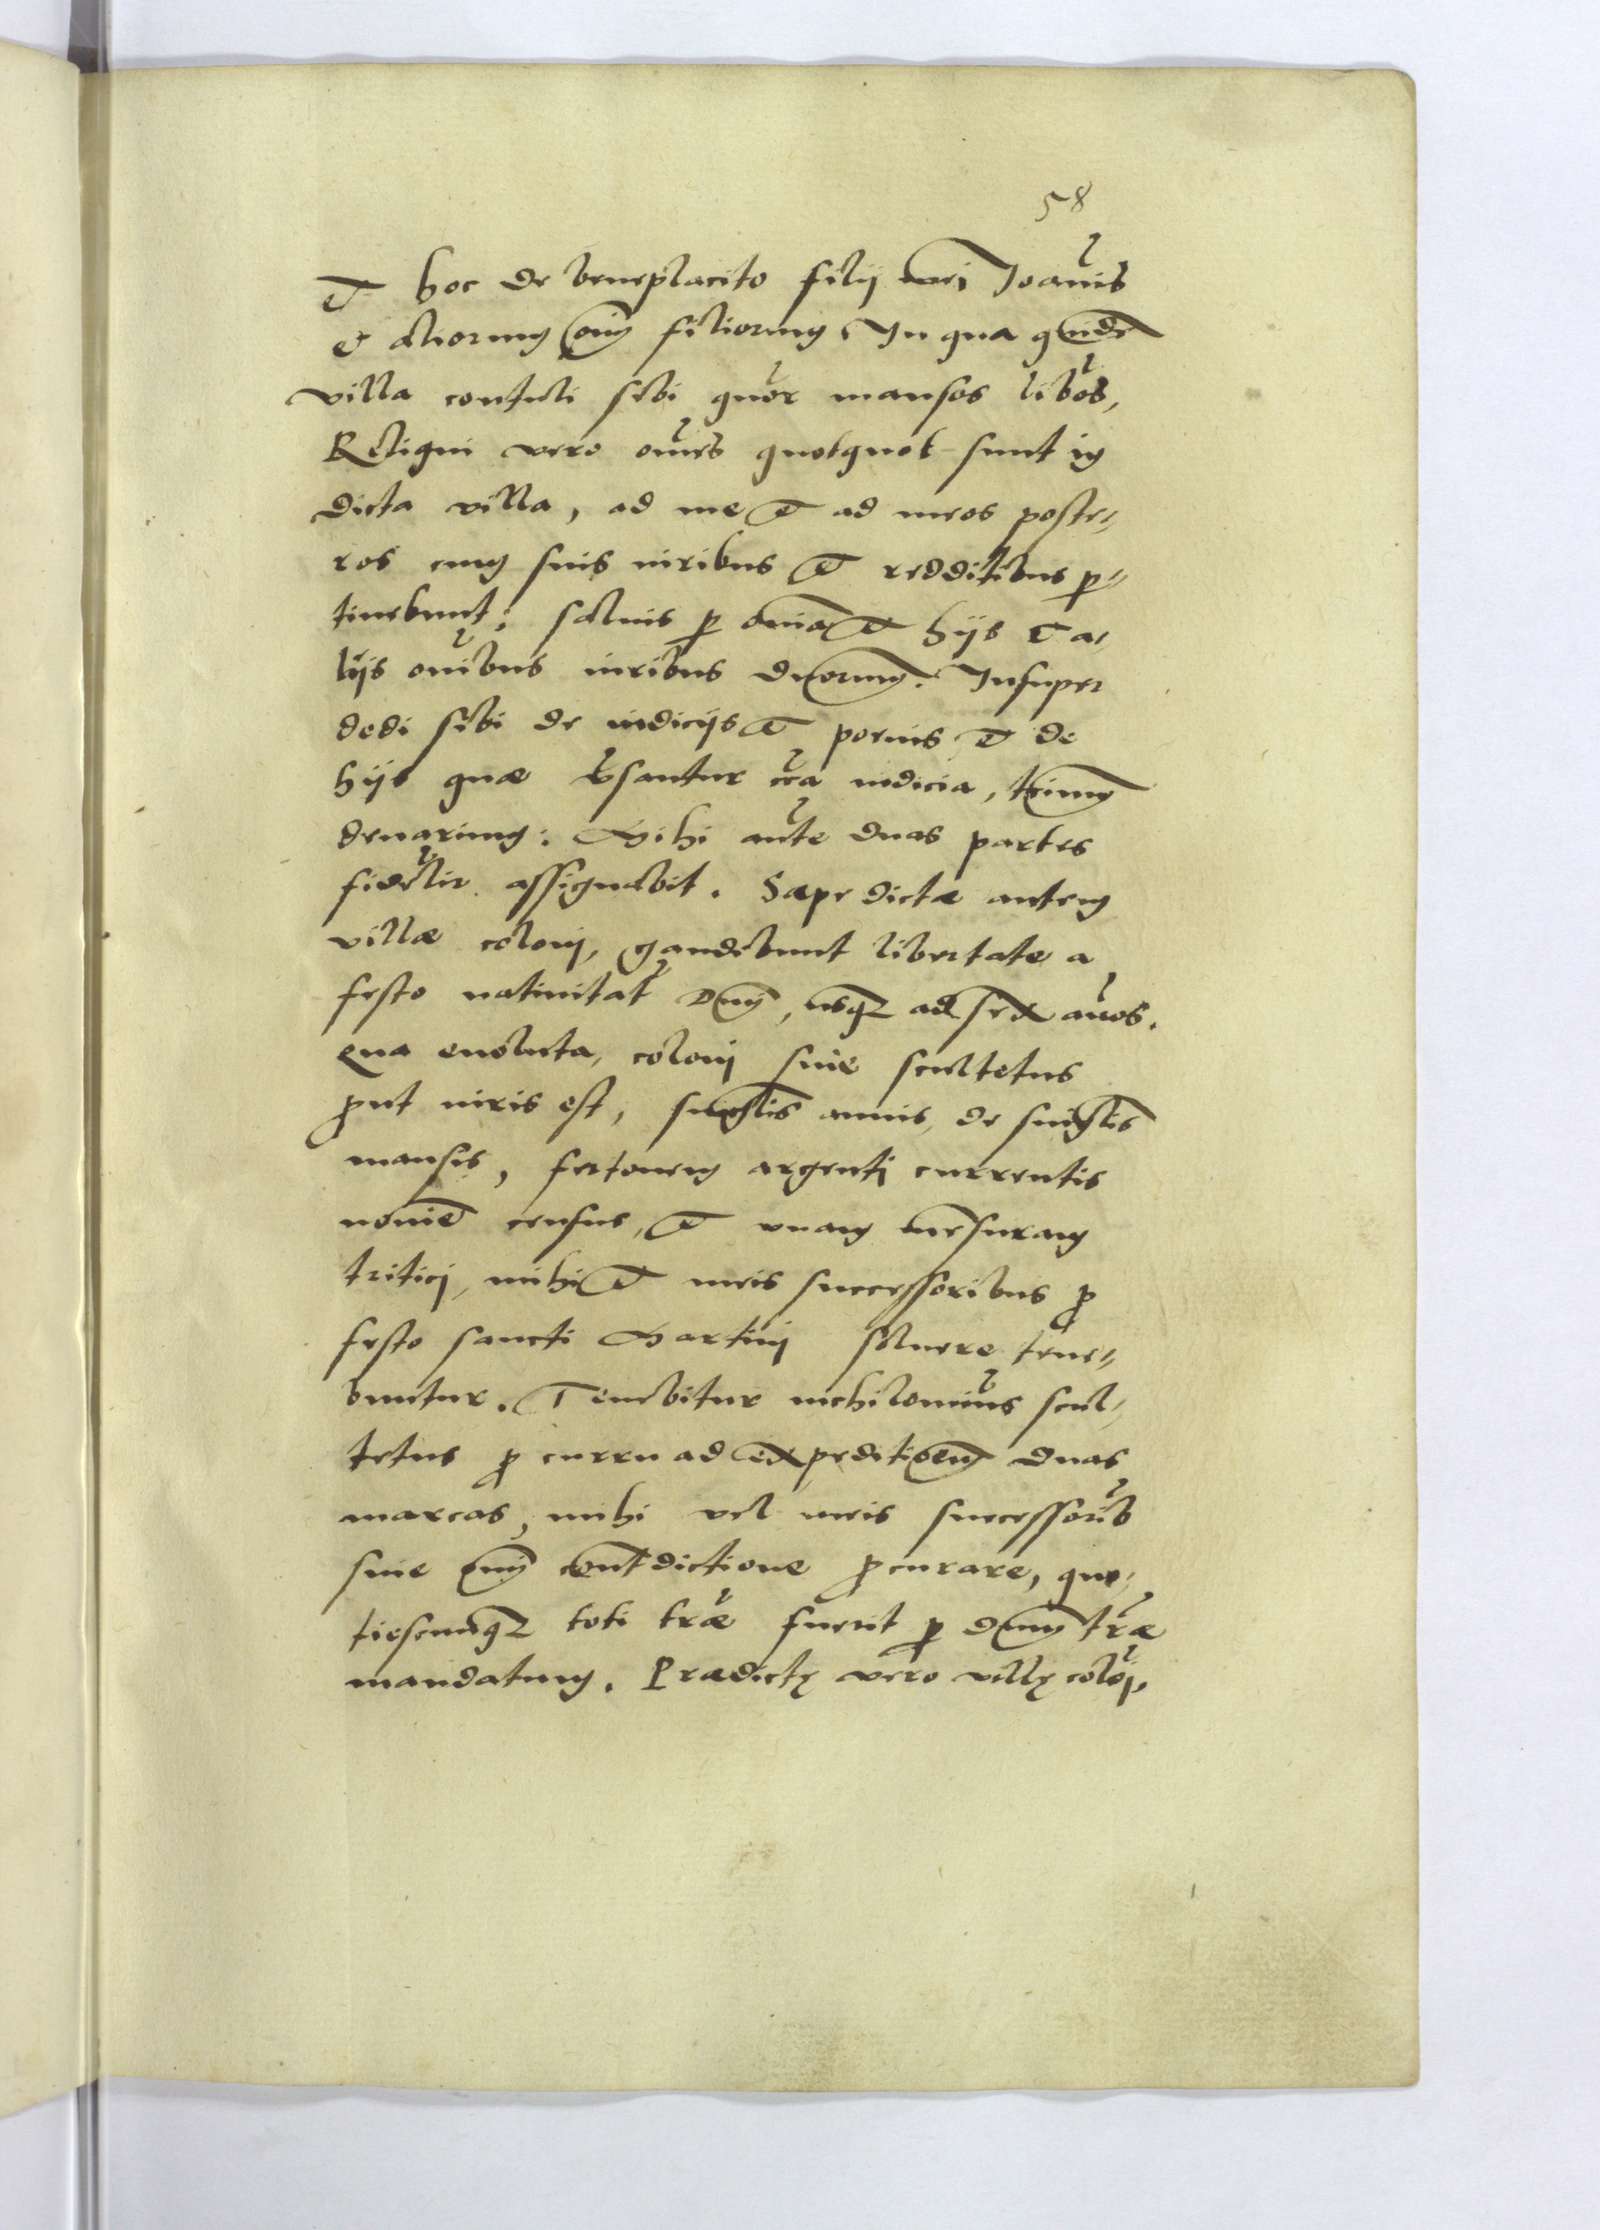 58
Et hoc de beneplacito filij mei Joannis
et aliorum meorum filiorum, In qua quidem
villa contuli sibi quatuor mansos liberos,
Reliqui vero omnes quotquot sunt in
dicta villa, ad me et ad meos poste-
ros cum suis iuribus et redditibus per-
tinebunt: saluis per omnia et hijs et a-
lijs omnibus iuribus ducorum. Insuper
dedi sibi de iudicijs et poenis et de
hijs quae versantur circa iudicia, tertium
denarium: Mihi autem duas partes
fideliter assignabit. Saepe dictae autem
villae coloni, gaudebunt libertate a
festo natiuitatis Domini, usque ad sex annos.
Qua euoluta, coloni siue scultetus
prout iuris est, singulis annis, de singulis
mansis, fertonem argenti currentis
nomine census, et vnam mensuram
tritici, mihi et meis successoribus pro
festo sancti Martini soluere tene-
buntur. Tenebitur nichilominus scul-
tetus pro curru ad expeditionem duas
marcas, mihi vel meis successoribus
sine omni contradictione procurare, quo-
tiescunque toti terrae fuerit per dominum terrae
mandatum. Praedictę vero villę coloni,